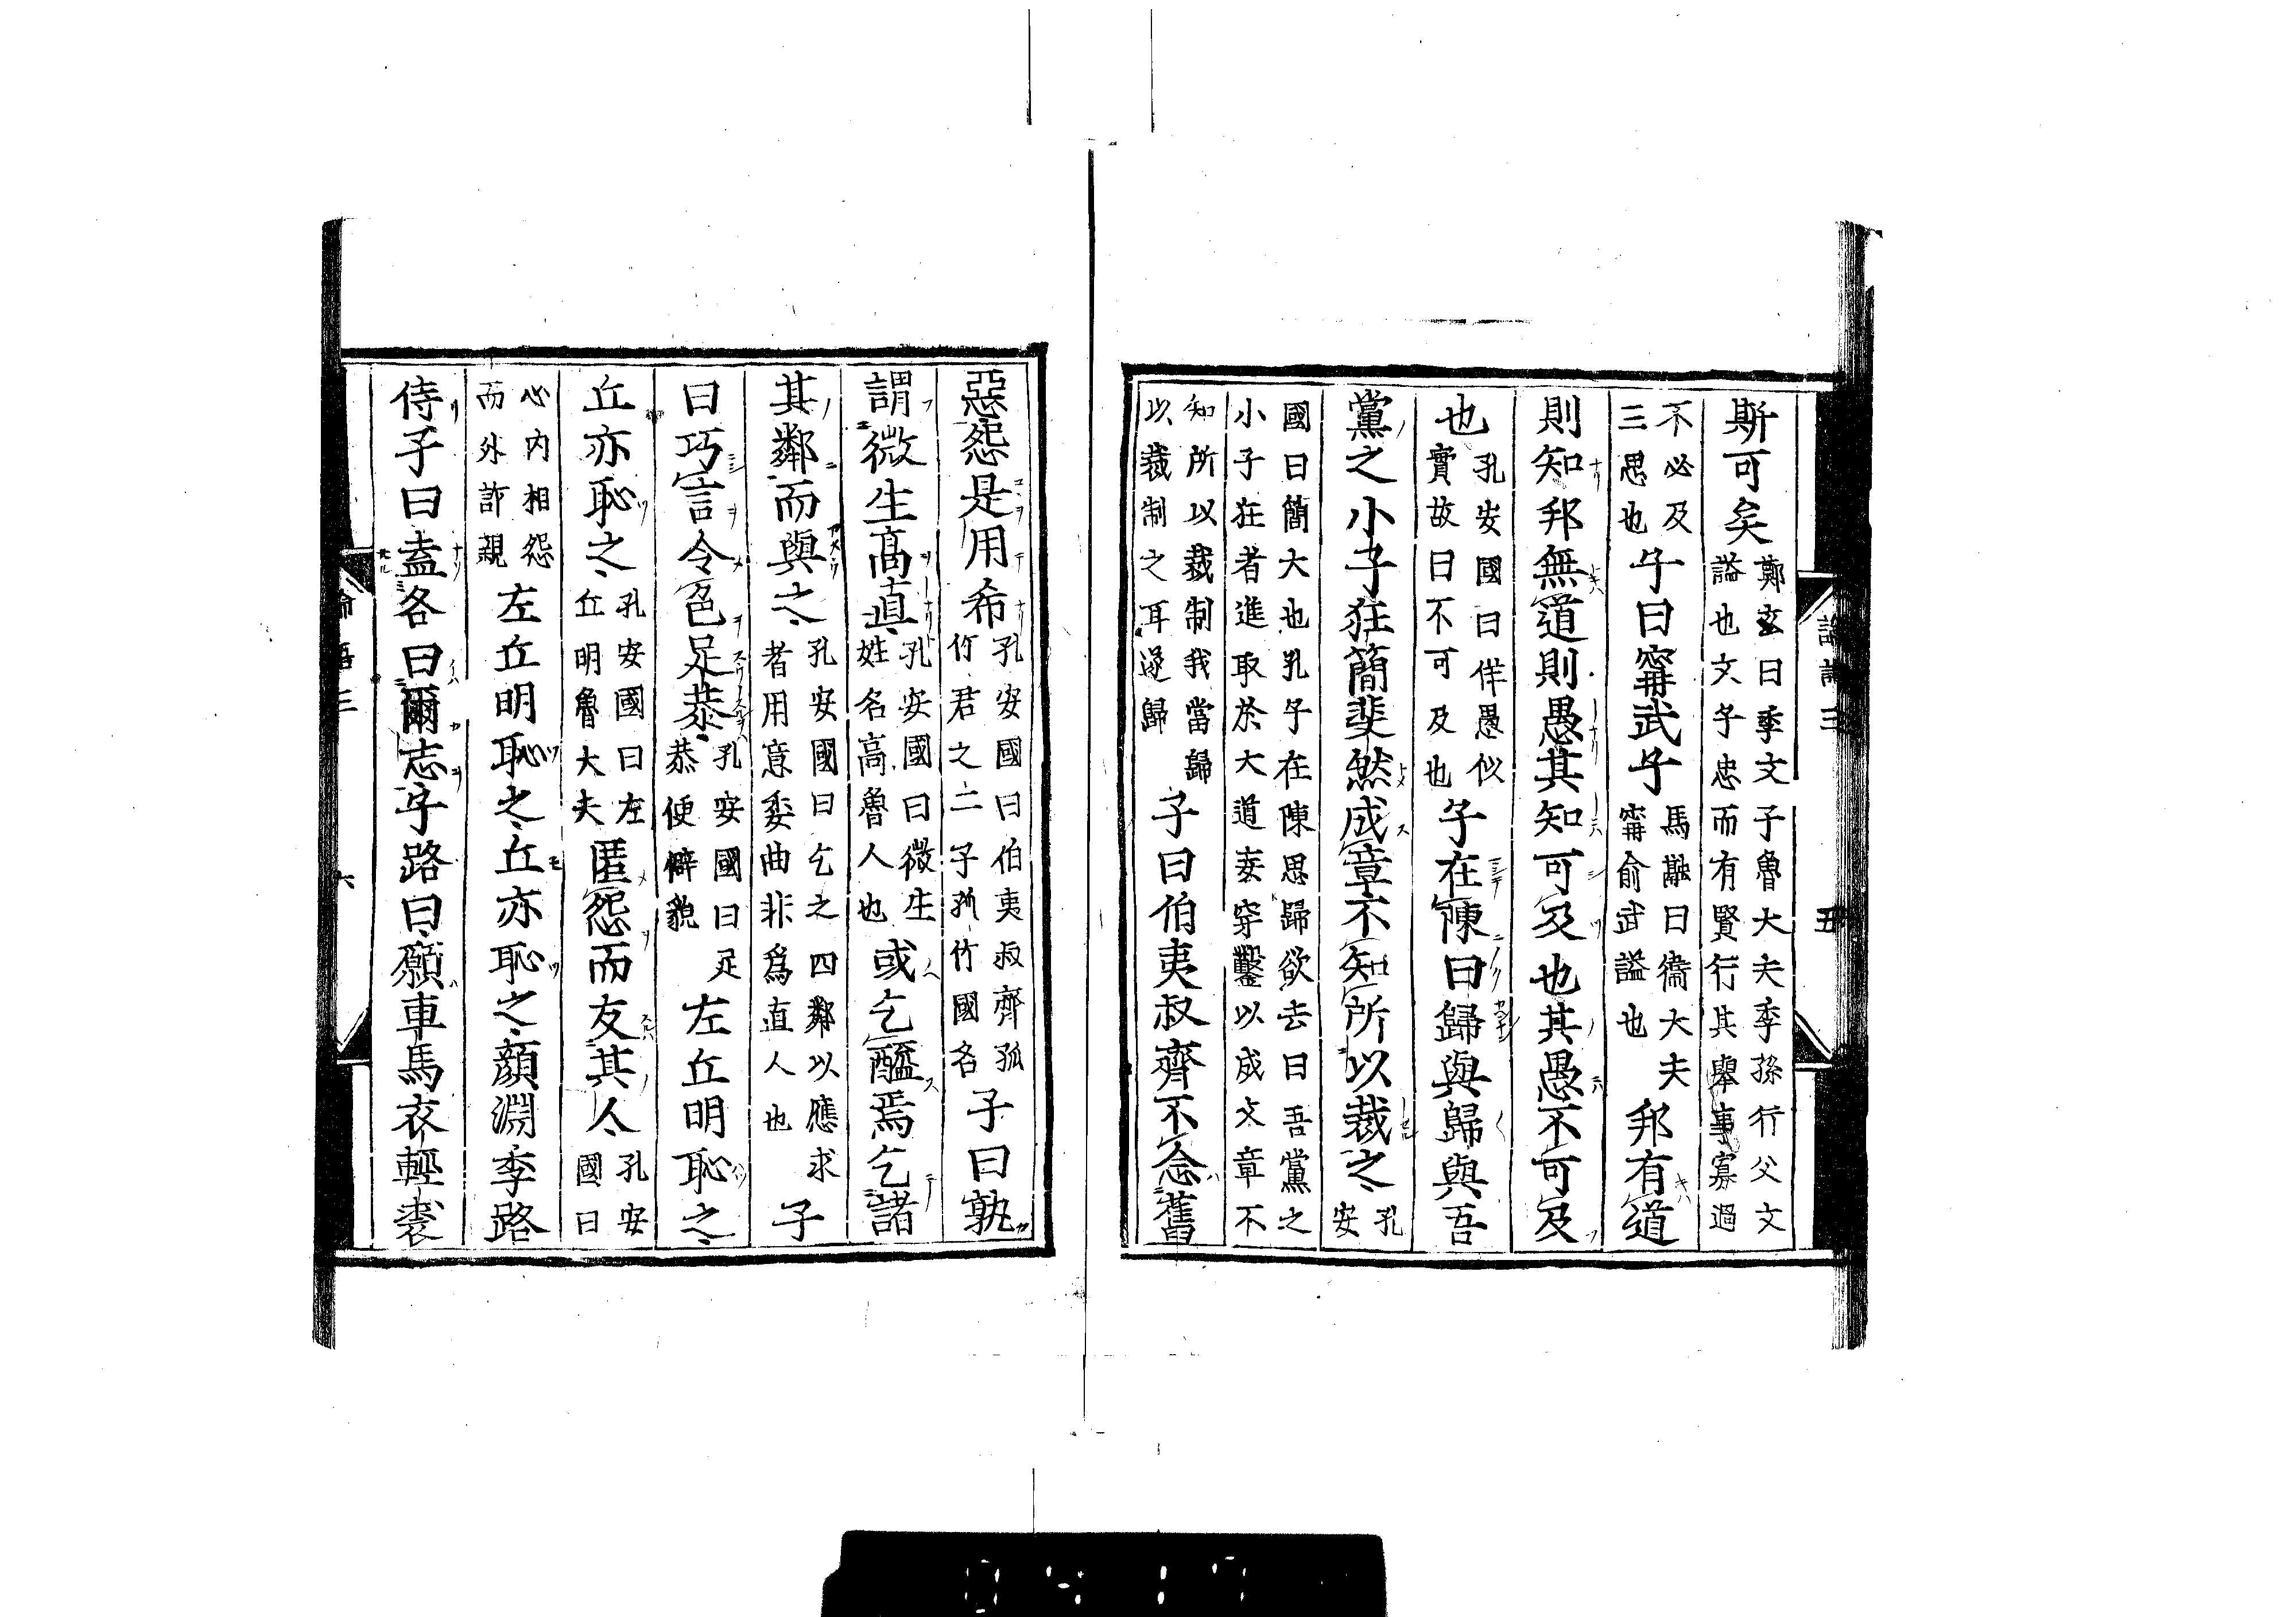 斯可矣鄭玄曰季文子魯大夫季孫行父文謚也文子忠而有賢行其舉事寡過
不必及三思也子曰甯武子馬融曰衛大夫甯俞武謚也邦有道
則知邦無道則愚其知可及也其愚不可及
也孔安國曰佯愚似實故曰不可及也子在陳曰歸與歸與吾
黨之小子狂簡斐然成章不知所以裁之孔安
國曰簡大也孔子在陳思歸欲去曰吾黨之小子狂者進取於大道妄穿鑿以成文章不
知所以裁制我當歸以裁制之耳遂歸子曰伯夷叔齊不念舊
惡怨是用希孔安國曰伯夷叔齊孤竹君之二子孤竹國名子曰孰
謂微生高直孔安國曰微生姓名高魯人也或乞醯焉乞諸
其鄰而與之孔安國曰乞之四鄰以應求者用意委曲非爲直人也子
曰巧言令色足恭孔安國曰足恭便僻貌左丘明恥之
丘亦恥之孔安國曰左丘明魯大夫匿怨而友其人孔安國曰
心内相怨而外詐親左丘明恥之丘亦恥之顏淵季路
侍子曰盍各曰爾志子路曰願車馬衣輕裘
論語三
五
六